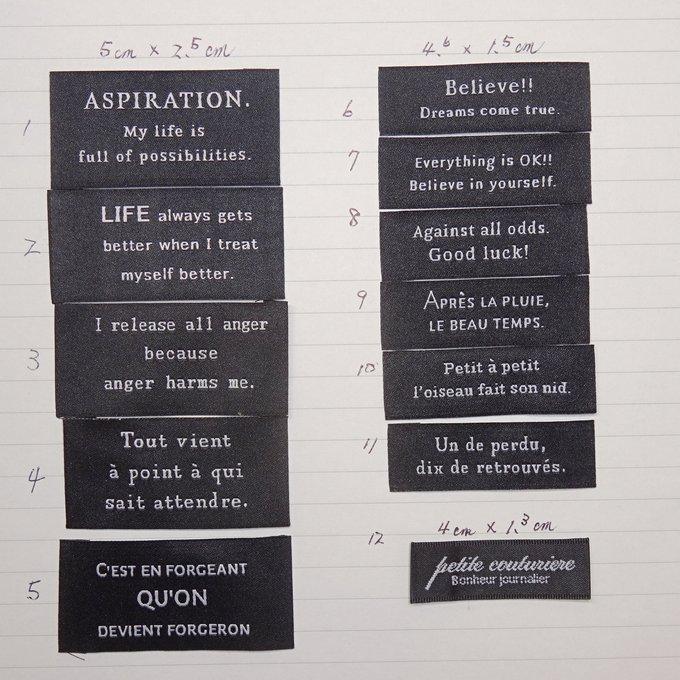 5cm × 2.5cm
1
ASPIRATION.
My life is
full of possibilities.
2
LIFE always gets
better when I treat
myself better.
3
I release all anger
because
anger harms me.
4
Tout vient
à point à qui
sait attendre.
5
C'EST EN FORGEANT
QU'ON
DEVIENT FORGERON
4.6 × 1.5cm
6
Believe!!
Dreams come true.
7
Everything is OK!!
Believe in yourself.
8
Against all odds.
Good luck!
9
APRÈS LA PLUIE,
LE BEAU TEMPS.
10
Petit à petit
l'oiseau fait son nid.
11
Un de perdu,
dix de retrouvés.
4cm × 1.3cm
12
petite couturiere
Bonheur journalier